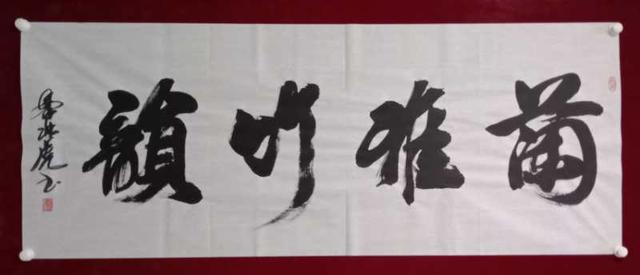 蘭雅竹韻